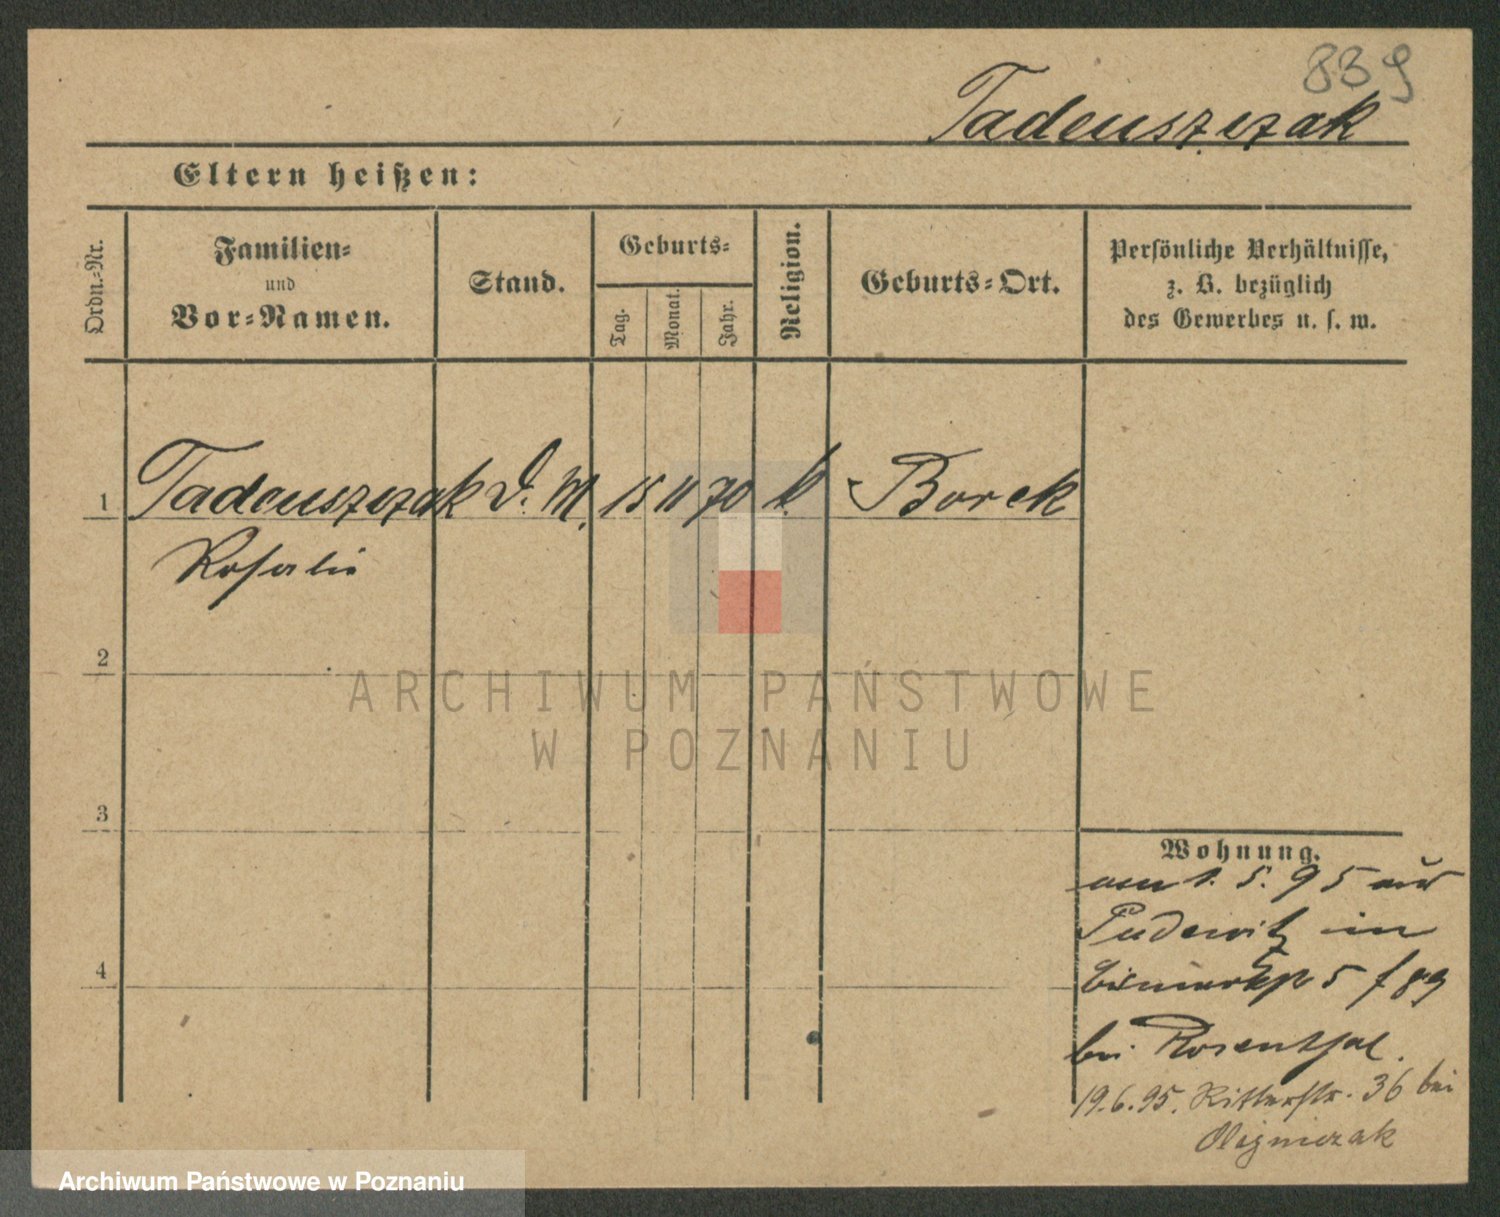 839
Tadeuszczak
Eltern heißen:
Ordn.-Nr.
Familien-
und
Vor-Namen.
Stand.
Geburts-
Tag.
Monat.
Jahr.
Religion.
Geburts-Ort.
Persönliche Verhältnisse,
z. B. bezüglich
des Gewerbes u. s. w.
1 Tadeuszczak D. M. 15 11 70 k. Borek
Rosalie
2
ARCHIWUM PAŃSTWOWE
W POZNANIU
3
Wohnung.
am 1. 5. 95 aus
Pudewitz in
5
4
bei Rosenthal.
19.6.95. Ritterstr. 36 bei
Archiwum Państwowe w Poznaniu